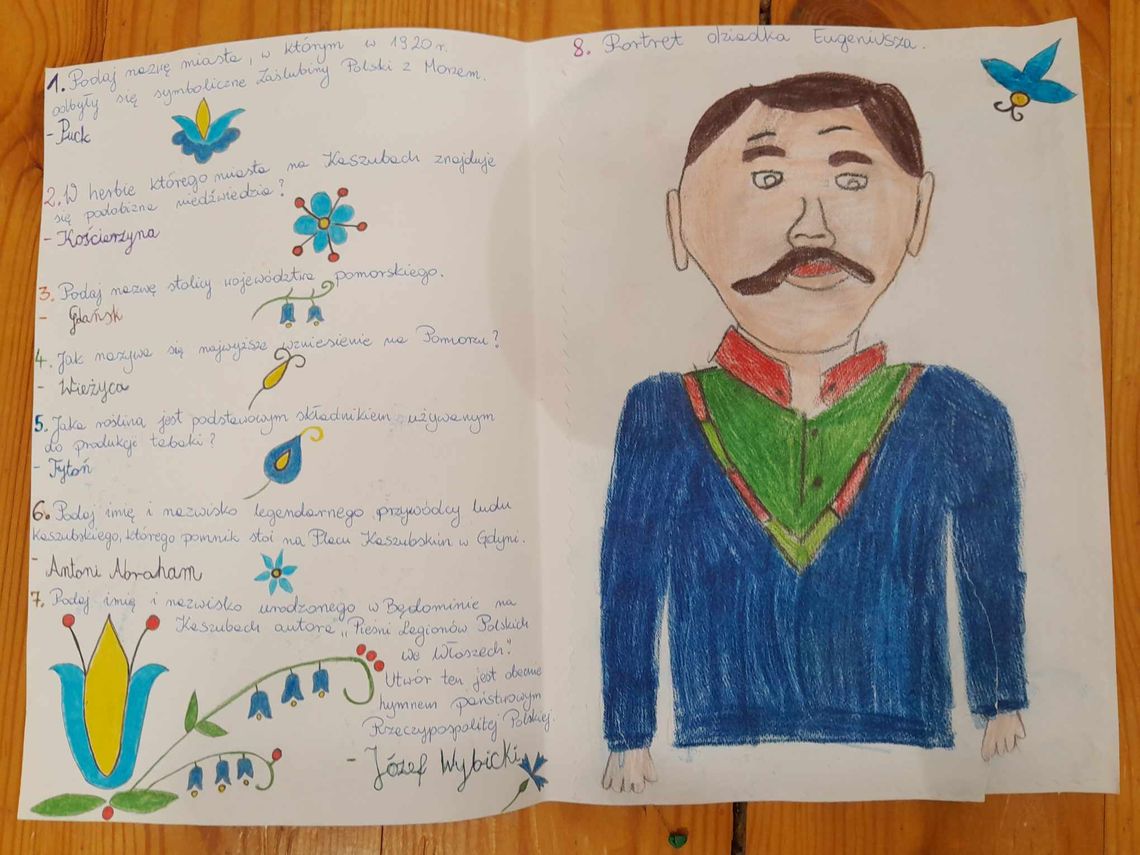 1. Podaj nazwę miasta, w którym w 1920 r.
odbyły się symboliczne Zaślubiny Polski z Morzem.
- Puck
2. W herbie którego miasta na Kaszubach znajduje
się podobizna niedźwiedzia?
- Kościerzyna
3. Podaj nazwę stolicy województwa pomorskiego.
- Gdańsk
4. Jak nazywa się najwyższe wzniesienie na Pomorzu?
- Wieżyca
5. Jaka roślina jest podstawowym składnikiem używanym
do produkcji tabaki?
- Tytoń
6. Podaj imię i nazwisko legendarnego przywódcy ludu
kaszubskiego, którego pomnik stoi na Placu Kaszubskim w Gdyni.
- Antoni Abraham
7. Podaj imię i nazwisko urodzonego w Będominie na
Kaszubach autora "Pieśni Legionów Polskich
we Włoszech".
Utwór ten jest obecnie
hymnem państwowym
Rzeczypospolitej Polskiej.
- Józef Wybicki
8. Portret dziadka Eugeniusza.